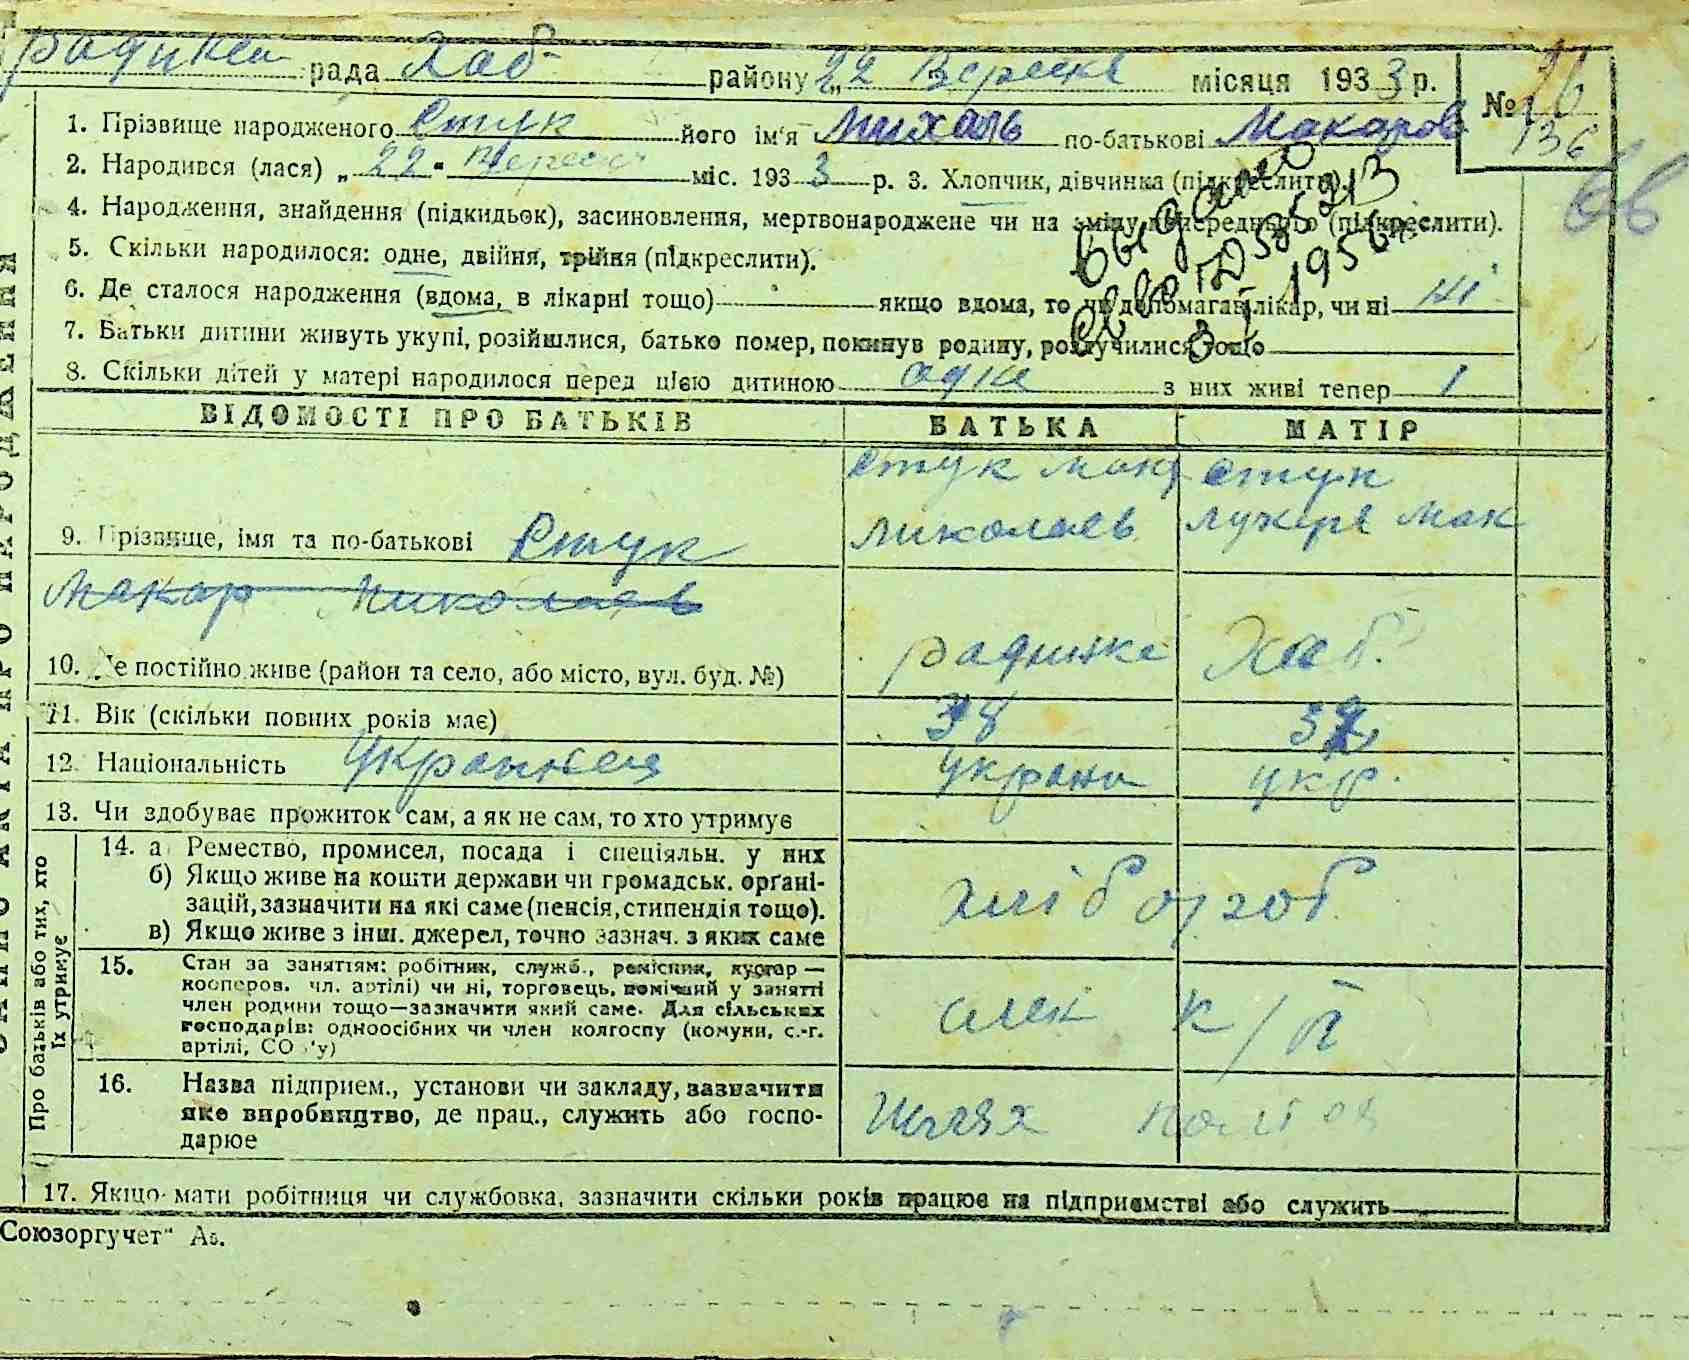 рада Хаб району 22 Вересня місяця 1933 р. №
1. Прізвище народженого Стук його ім'я Михаль по-батькові Макаров 136
2. Народився (лася) „22" Верес міс. 1933 р. 3. Хлопчик, дівчинка (підкреслити).
4. Народження, знайдення (підкидьок), засиновлення, мертвонароджене чи на зміну попереднього (підкреслити).
5. Скільки народилося: одне, двійня, трійня (підкреслити).
6. Де сталося народження (вдома, в лікарні тощо) якщо вдома, то чи допомагав лікар, чи ні ні
7. Батьки дитини живуть укупі, розійшлися, батько помер, покинув родину, розлучилися тощо
8. Скільки дітей у матері народилося перед цією дитиною одне з них живі тепер 1
Выдано
1956
ВІДОМОСТІ ПРО БАТЬКІВ БАТЬКА МАТІР
Стук Мак Стук
9. Прізвище, імя та по-батькові Стук Миколаев Лукеря Мак
Макар Миколаев
10. Де постійно живе (район та село, або місто, вул. буд. №) Радинка Хаб.
11. Вік (скільки повних років має) 38
12. Національність Українець Украни укр.
13. Чи здобуває прожиток сам, а як не сам, то хто утримує
Про батьків або тих, хто їх утримує
14. а) Ремество, промисел, посада і спеціяльн. у них
б) Якщо живе на кошти держави чи громадськ. органі-
зацій, зазначити на які саме (пенсія, стипендія тощо).
в) Якщо живе з інш. джерел, точно зазнач. з яких саме
хлібороб
15. Стан за заняттям: робітник, служб., ремісник, кустар —
кооперов. чл. артілі) чи ні, торговець, помічний у занятті
член родини тощо—зазначити який саме. Для сільських
господарів: одноосібних чи член колгоспу (комуни, с.-г.
артілі, СО у)
член к/г
16. Назва підприєм., установи чи закладу, зазначити
яке виробництво, де прац., служить або госпо-
дарює
Шлях
17. Якщо мати робітниця чи службовка, зазначити скільки років працює на підприємстві або служить
Союзоргучет"